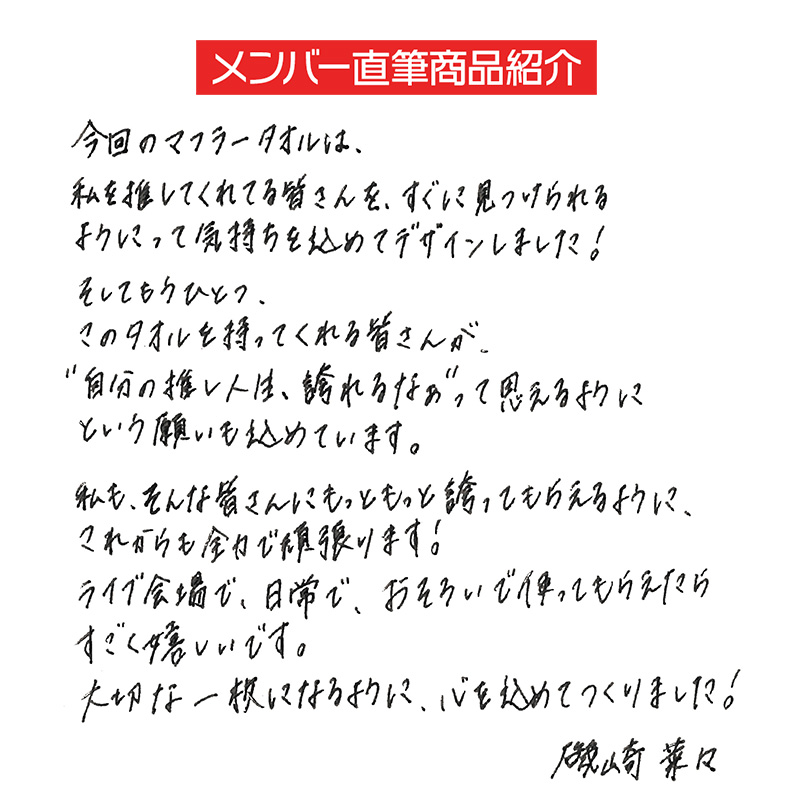 メンバー直筆商品紹介
今回のマフラータオルは、
私を推してくれてる皆さんを、すぐに見つけられる
ようにって気持ちを込めてデザインしました！
そしてもうひとつ、
このタオルを持ってくれる皆さんが、
"自分の推し人生、誇れるなぁ"って思えるように
という願いも込めています。
私も、そんな皆さんにもっともっと誇ってもらえるように、
これからも全力で頑張ります！
ライブ会場で、日常で、おそろいで使ってもらえたら
すごく嬉しいです。
大切な一枚になるように、心を込めてつくりました！
磯崎菜々